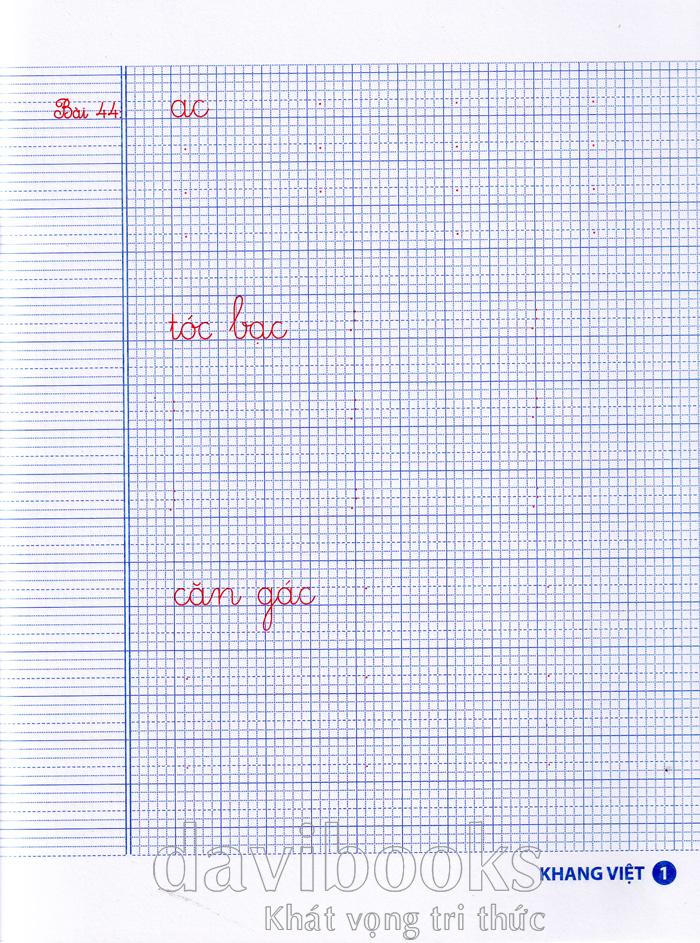 Bài 44 ac
tóc bạc
căn gác
davibooks
KHANG VIỆT 1
Khát vọng tri thức